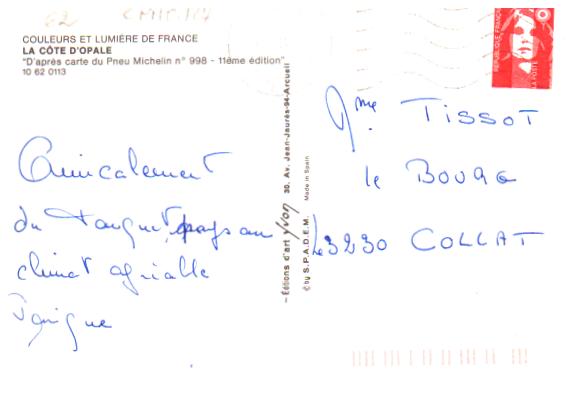 62
COULEURS ET LUMIÈRE DE FRANCE
LA CÔTE D'OPALE
"D'après carte du Pneu Michelin n° 998 - 11ème édition"
10 62 0113
Amicalement
du Touquet, pays au
climat agréable
– Éditions d'art yvon 30, Av. Jean-Jaurès-94-Arcueil
© by S.P.A.D.E.M. Made in Spain
REPUBLIQUE FRANÇAISE
LA POSTE
Mme TISSOT
le BOURG
43230 COLLAT